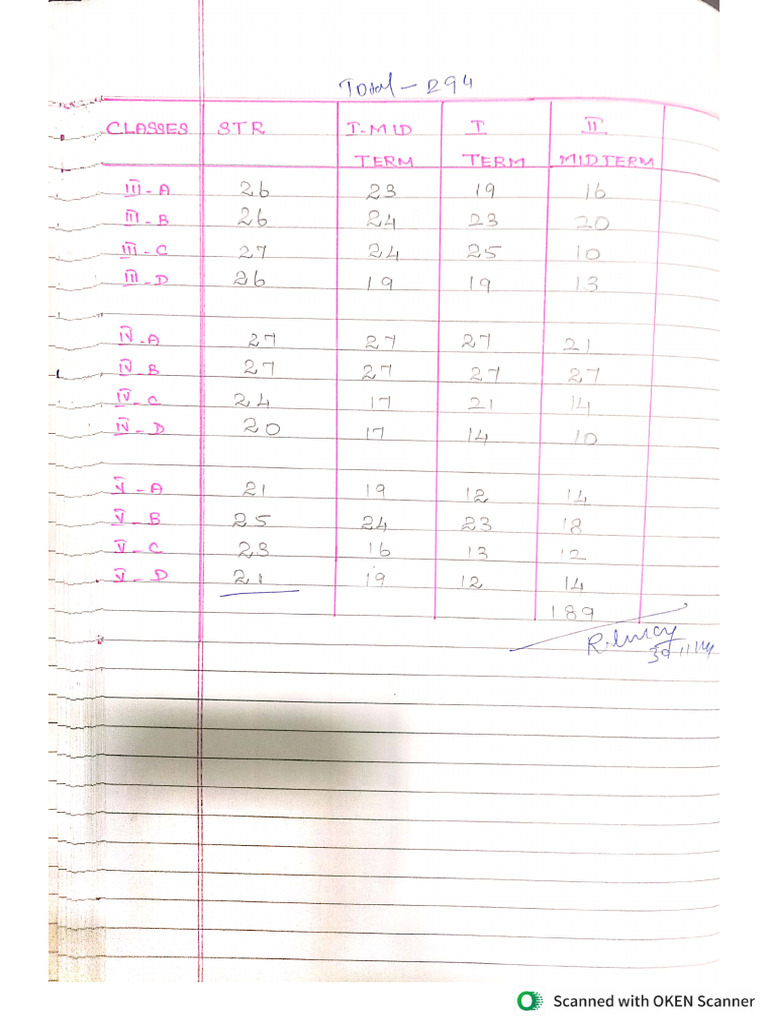 Total - 294
CLASSES STR I-MID I II
TERM TERM MIDTERM
III-A 26 23 19 16
III-B 26 24 23 20
III-C 27 24 25 10
III-D 26 19 19 13
IV-A 27 27 27 21
IV-B 27 27 27 27
IV-C 24 17 21 14
IV-D 20 17 14 10
V-A 21 19 12 14
V-B 25 24 23 18
V-C 23 16 13 12
V-D 21 19 12 14
189
Scanned with OKEN Scanner